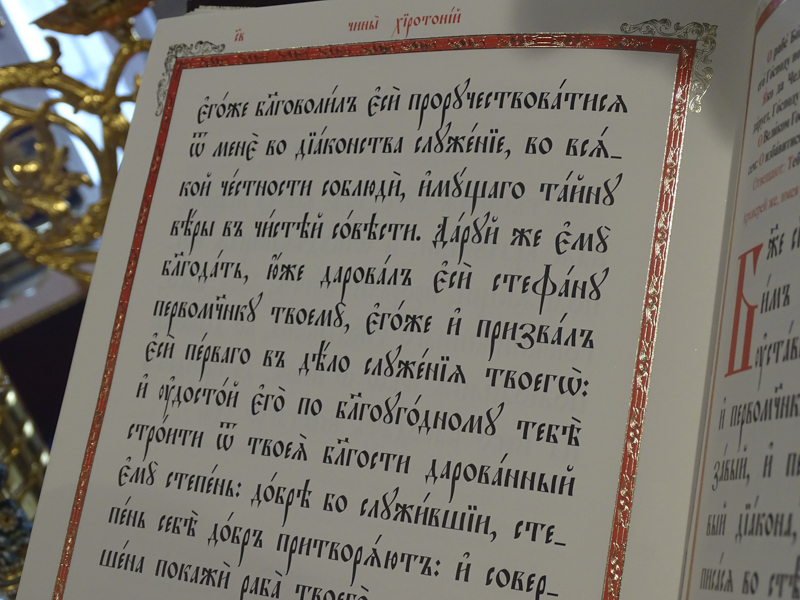 и҃в
чи́нъ хїротоні́й
є҆го́же бл҃говоли́лъ є҆сѝ прорꙋчествова́тися
ѿ менє̀ во дїа́конства слꙋже́нїе, во вся́_
кой че́стности соблюдѝ, и҆мꙋ́щаго та́йнꙋ
вѣ́ры въ чи́стѣй со́вѣсти. Да́рꙋй же є҆мꙋ̀
бл҃года́ть, ю҆́же дарова́лъ є҆сѝ стефа́нꙋ
первомч҃нкꙋ твоемꙋ̀, є҆го́же и҆ призва́лъ
є҆сѝ пе́рваго въ дѣ́ло слꙋже́нїя твоегѡ̀:
и҆ ᲂу҆досто́й є҆го̀ по бл҃гоꙋго́дномꙋ тебѣ̀
стро́ити ѿ твоея̀ бл҃гости дарова́нный
є҆мꙋ̀ степе́нь: до́брѣ бо слꙋжи́вшїи, сте_
пе́нь себѣ̀ до́бръ притворя́ютъ: и҆ совер_
ше́на покажѝ раба̀ твоего̀